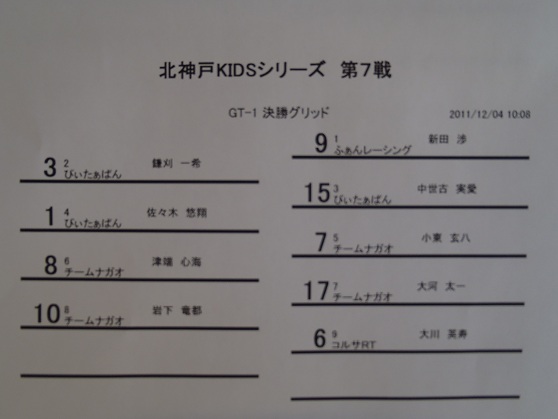 北神戸KIDSシリーズ 第7戦
GT-1 決勝グリッド
2011/12/04 10:08
9 1 新田 渉
ふぁんレーシング
3 2 鎌刈 一希
びぃたぁばん
15 3 中世古 実愛
びぃたぁばん
1 4 佐々木 悠翔
びぃたぁばん
7 5 小東 玄八
チームナガオ
8 6 津端 心海
チームナガオ
17 7 大河 太一
チームナガオ
10 8 岩下 竜都
チームナガオ
6 9 大川 英寿
コルサRT